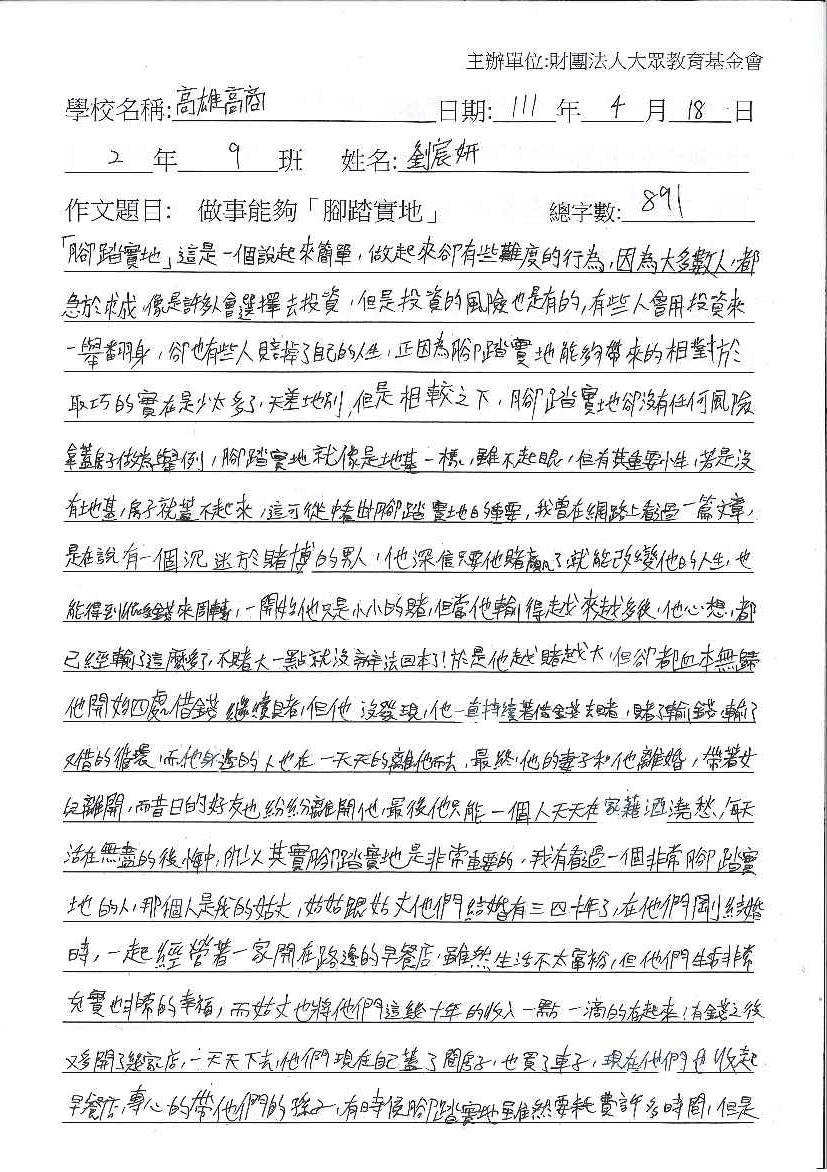 主辦單位:財團法人大眾教育基金會
學校名稱:高雄高商 日期: 111 年 4 月 18 日
2 年 9 班 姓名:劉宸妍
作文題目: 做事能夠「腳踏實地」 總字數: 891
「腳踏實地」這是一個說起來簡單,做起來卻有些難度的行為,因為大多數人,都
急於求成,像是許多人會選擇去投資,但是投資的風險也是有的,有些人會用投資來
一舉翻身,卻也有些人賠掉了自己的人生,正因為腳踏實地能夠帶來的相對於
取巧的實在是少太多了,天差地別,但是相較之下,腳踏實地卻沒有任何風險
拿蓋房子做為舉例,腳踏實地就像是地基一樣,雖不起眼,但有其重要性,若是沒
有地基,房子就蓋不起來,這可從中看出腳踏實地的重要,我曾在網路上看過一篇文章,
是在說有一個沉迷於賭博的男人,他深信只要他賭贏了就能改變他的人生,也
能得到錢來周轉,一開始他只是小小的賭,但當他輸得越來越多後,他心想,都
已經輸了這麼多了,不賭大一點就沒辦法回本了!於是他越賭越大,但卻都血本無歸
他開始四處借錢繼續賭,但他沒發現,他一直持續著借錢去賭,賭了輸錢,輸了
又借的循環,而他身邊的人也在一天天的離他而去,最終,他的妻子和他離婚,帶著女
兒離開,而昔日的好友也紛紛離開他,最後他只能一個人天天在家藉酒澆愁,每天
活在無盡的後悔中,所以其實腳踏實地是非常重要的,我有看過一個非常腳踏實
地的人,那個人是我的姑丈,姑姑跟姑丈他們結婚有三四十年了,在他們剛結婚
時,一起經營著一家開在路邊的早餐店,雖然生活不太富裕,但他們生活非常
充實也非常的幸福,而姑丈也將他們這幾十年的收入一點一滴的存起來,有錢之後
又多開了幾家店,一天天下去,他們現在自己蓋了間房子,也買了車子,現在他們也收起
早餐店,專心的帶他們的孫子,有時侯腳踏實地雖然要耗費許多時間,但是